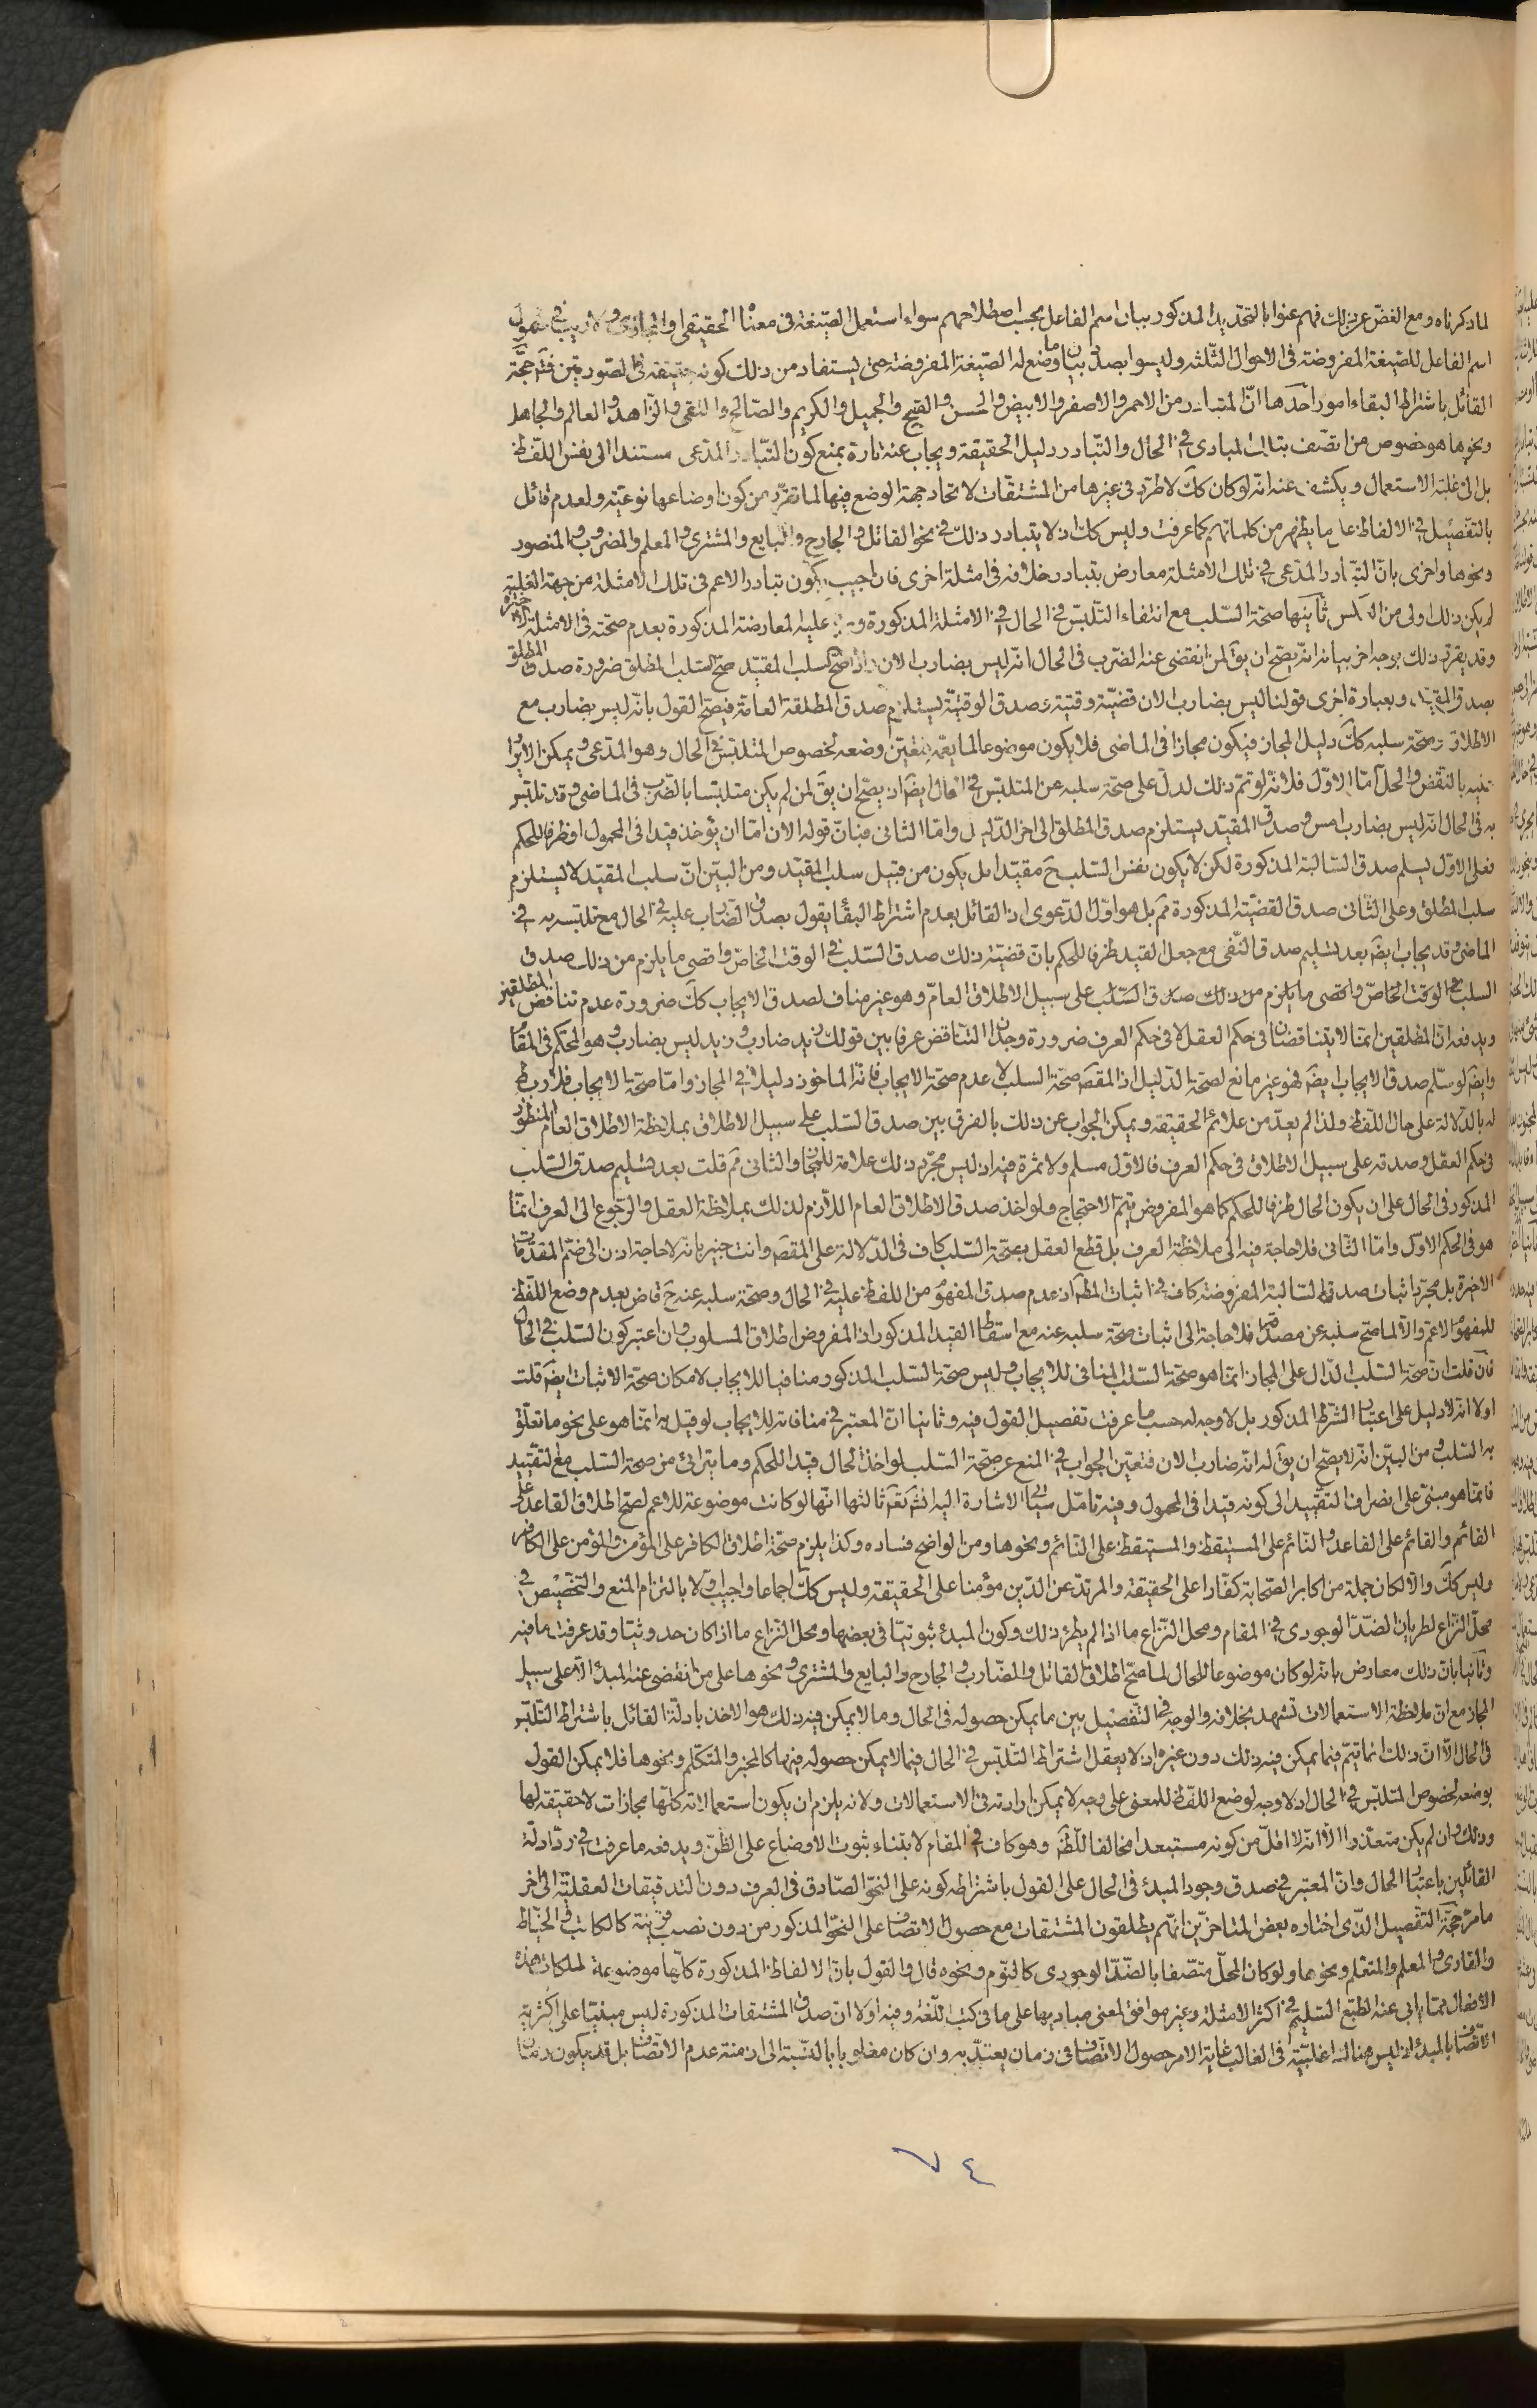 لما ذكرناه ومع الغض عن ذلك فهم عنوا بالتحديد المذكور بيان اسم الفاعل بحسب اصطلاحهم سواء استعمل الصيغة فى معناها الحقيقى او المجازى ولا ريب فى شمول
اسم الفاعل للصيغة المفروضة فى الاحوال الثلثة وليسوا بصدد بيان ما وضع له الصيغة المفروضة حتى يستفاد من ذلك كونه حقيقة فى الصورتين فتم حجة
القائل باشتراط البقاء امور احدها ان المتبادر من الاحمر والاصفر والابيض والحسن والقبيح والجميل والكريم والصالح والتقى والزاهد والعالم والجاهل
ونحوها هو خصوص من اتصف بتلك المبادى فى الحال والتبادر دليل الحقيقة ويجاب عنه تارة بمنع كون التبادر المدعى مستندا الى نفس اللفظ
بل الى غلبة الاستعمال ويكشف عنه انه لو كان كك لاطرد فى غيرها من المشتقات لاتحاد جهة الوضع فيها لما تقرر من كون اوضاعها نوعية ولعدم قائل
بالتفصيل فى الالفاظ على ما يظهر من كلماتهم كما عرفت وليس كك اذ لا يتبادر ذلك فى نحو القاتل والجارح والبايع والمشترى والمعلم والمضروب والمنصور
ونحوها واخرى بان التبادر المدعى فى تلك الامثلة معارض بتبادر خلافه فى امثلة اخرى فان اجيب بكون تبادر الاعم فى تلك الامثلة من جهة الغلبة
لم يكن ذلك اولى من العكس ثانيها صحة السلب مع انتفاء التلبس فى الحال فى الامثلة المذكورة و عليه المعارضة المذكورة بعدم صحته فى الامثلة الاخيرة
وقد يقرر ذلك بوجه اخر بيانه انه يصح ان يق لمن انقضى عنه الضرب فى الحال انه ليس بضارب الان واذا صح السلب المقيد صح السلب المطلق ضرورة صدق المطلق
بصدق المقيد وبعبارة اخرى قولنا ليس بضارب الان قضية وقتية وصدق الوقتية يستلزم صدق المطلقة العامة فيصح القول بانه ليس بضارب مع
الاطلاق وصحة سلبه كك دليل المجاز فيكون مجازا فى الماضى فلا يكون موضوعا لما يعمه فتعين وضعه لخصوص المتلبس فى الحال وهو المدعى ويمكن الايراد
عليه بالنقض والحل اما الاول فلانه لو تم ذلك لدل على صحة سلبه عن المتلبس فى الحال ايضا اذ يصح ان يق لمن لم يكن متلبسا بالضرب فى الماضى وقد تلبس
به فى الحال انه ليس بضارب امس وصدق المقيد يستلزم صدق المطلق الى اخر الدليل واما الثانى فبان قوله الان اما ان يؤخذ قيدا فى المحمول او ظرفا للحكم
فعلى الاول يسلم صدق السالبة المذكورة لكن لا يكون نفس السلب ح مقيدا بل يكون من قبيل سلب المقيد ومن البين ان سلب المقيد لا يستلزم
سلب المطلق وعلى الثانى صدق القضية المذكورة مم بل هو اول الدعوى اذ القائل بعدم اشتراط البقاء يقول بصدق الضارب عليه فى الحال مع تلبسه به فى
الماضى وقد يجاب ايض بعد تسليم صدق النفى مع جعل القيد ظرفا للحكم بان قضية ذلك صدق السلب فى الوقت الخاص واقصى ما يلزم من ذلك صدق
السلب فى الوقت الخاص واقصى ما يلزم من ذلك صدق السلب على سبيل الاطلاق العام وهو غير مناف لصدق الايجاب كك ضرورة عدم تناقض المطلقين
ويدفعه ان المطلقين انما لا يتناقضان فى حكم العقل لا فى حكم العرف ضرورة وجدان التناقض عرفا بين قولك زيد ضارب وزيد ليس بضارب وهو المحكم فى المقام
وايض لو سلم صدق الايجاب ايض فهو غير مانع لصحة الدليل اذ المقص صحة السلب لا عدم صحة الايجاب فانه الماخوذ دليلا فى المجاز واما صحة الايجاب فلا ربط
له بالدلالة على حال اللفظ ولذا لم يعد من علائم الحقيقة ويمكن الجواب عن ذلك بالفرق بين صدق السلب على سبيل الاطلاق بملاحظة الاطلاق العام المنظور
فى حكم العقل وصدقه على سبيل الاطلاق فى حكم العرف فالاول مسلم ولا ثمرة فيه اذ ليس مجرد ذلك علامة للمجاز والثانى مم قلت بعد تسليم صدق السلب
المذكور فى الحال على ان يكون الحال ظرفا للحكم كما هو المفروض يتم الاحتجاج ولو اخذ صدق الاطلاق العام اللازم لذلك بملاحظة العقل والرجوع الى العرف انما
هو فى الحكم الاول واما الثانى فلا حاجة فيه الى ملاحظة العرف بل قطع العقل بصحة السلب كاف فى الدلالة على المقص وانت خبير بانه لا حاجة اذن الى ضم المقدمات
الاخيرة بل مجرد اثبات صدق السالبة المفروضة كاف فى اثبات المط اذ عدم صدق المفهوم من اللفظ عليه فى الحال وصحة سلبه عنه ح قاض بعدم وضع اللفظ
للمفهوم الاعم والا لما صح سلبه عن مصداقه فلا حاجة الى اثبات صحة سلبه عنه مع اسقاط القيد المذكور اذ المفروض اطلاق المسلوب وان اعتبر كون السلب فى الحال
فان قلت ان صحة السلب الدال على المجاز انما هو صحة السلب المنافى للايجاب وليس صحة السلب المذكور منافيا للايجاب لامكان صحة الاثبات ايض قلت
اولا انه لا دليل على اعتبار الشرط المذكور بل لا وجه له حسب ما عرفت تفصيل القول فيه وثانيا ان المعتبر فى منافاته للايجاب لو قيل به انما هو على نحو ما تعلق
به السلب ومن البين انه لا يصح ان يق له انه ضارب الان فتعين الجواب فى المنع عن صحة السلب لو اخذ الحال قيدا للحكم وما يترائى من صحة السلب مع التقييد
فانما هو مبنى على انصراف التقييد الى كونه قيدا فى المحمول وفيه تامل سياتى الاشارة اليه انش تع ثالثها انها لو كانت موضوعة للاعم لصح اطلاق القاعد على
القائم والقائم على القاعد والنائم على المستيقظ والمستيقظ على النائم ونحوها ومن الواضح فساده وكذا يلزم صحة اطلاق الكافر على المؤمن والمؤمن على الكافر
وليس كك والا لكان جملة من اكابر الصحابة كفارا على الحقيقة والمرتد عن الدين مؤمنا على الحقيقة وليس كك اجماعا واجيب اولا بالتزام المنع والتخصيص فى
محل النزاع لطريان الضد الوجودى فى المقام ومحل النزاع ما اذا لم يطرء ذلك وكون المبدء ثبوتيا فى بعضها ومحل النزاع ما اذا كان حدوثيا وقد عرفت ما فيه
وثانيا بان ذلك معارض بانه لو كان موضوعا للحال لما صح اطلاق القاتل والضارب والجارح والبايع والمشترى ونحوها على من انقضى عنه المبدء الا على سبيل
المجاز مع ان ملاحظة الاستعمالات تشهد بخلافه والوجه فى التفصيل بين ما يمكن حصوله فى الحال وما لا يمكن فيه ذلك هو الاخذ بادلة القائل باشتراط التلبس
فى الحال الا ان ذلك انما يتم فيما يمكن فيه ذلك دون غيره اذ لا يعقل اشتراط التلبس فى الحال فيما لا يمكن حصوله فيها كالمخبر والمتكلم ونحوها فلا يمكن القول
بوضعه لخصوص المتلبس فى الحال اذ لا وجه لوضع اللفظ للمعنى على وجه لا يمكن ارادته فى الاستعمالات ولانه يلزم ان يكون استعمالاته كلها مجازات لا حقيقة لها
وذلك وان لم يكن متعذرا الا انه لا اقل من كونه مستبعدا مخالفا للظ وهو كاف فى المقام لابتناء ثبوت الاوضاع على الظن ويدفعه ما عرفت فى رد ادلة
القائلين باعتبار الحال وان المعتبر فى صدق وجود المبدء فى الحال على القول باشتراطه كونه على النحو الصادق فى العرف دون التدقيقات العقلية الى اخر
ما مر حجة التفصيل الذى اختاره بعض المتاخرين انهم يطلقون المشتقات مع حصول الاتصاف على النحو المذكور من دون نصب قرينة كالكاتب والخياط
والقارى والمعلم والمتعلم ونحوها ولو كان المحل متصفا بالضد الوجودى كالنوم ونحوه قال والقول بان الالفاظ المذكورة كلها موضوعة لملكات هذه
الافعال مما يابى عنه الطبع السليم فى اكثر الامثلة وغير موافق لمعنى مباديها على ما فى كتب اللغة وفيه اولا ان صدق المشتقات المذكورة ليس مبنيا على اكثرية
الاتصاف بالمبدء اذ ليس هناك اغلبية فى الغالب غاية الامر حصول الاتصاف فى زمان يعتد به وان كان مغلوبا بالنسبة الى ازمنة عدم الاتصاف بل قد يكون زمان
٧٤